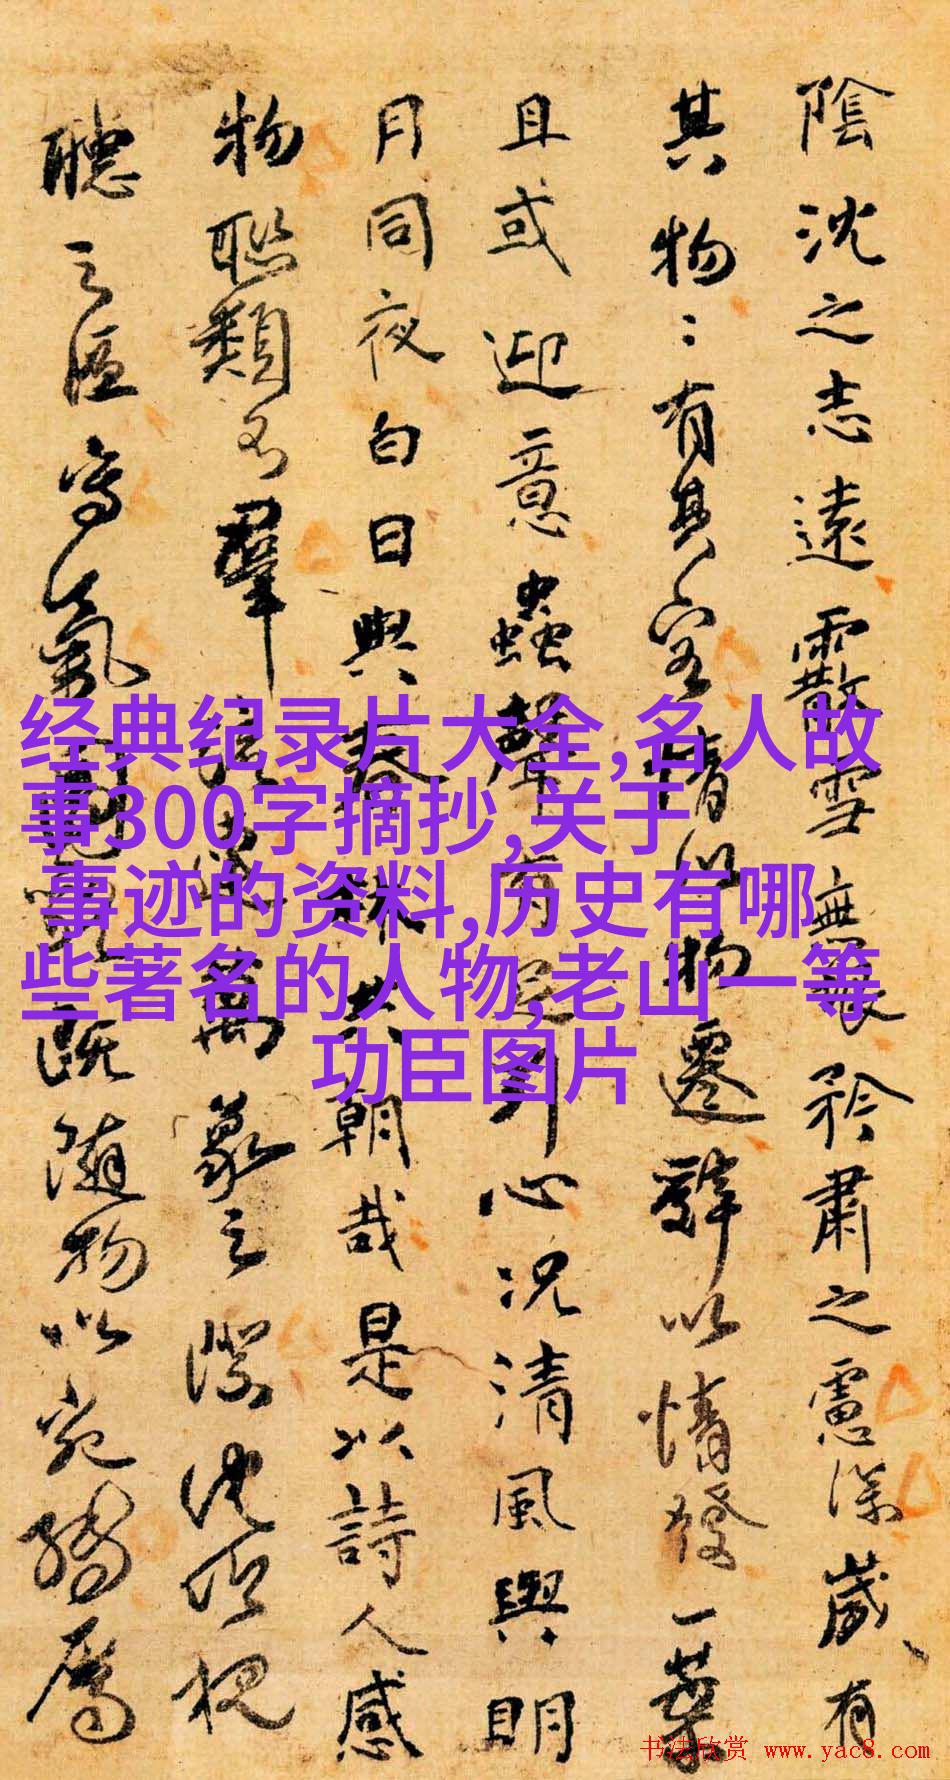 陰沈之志遠霰雪無垠矜肅之慮深歲有
其物物有其容情以物遷辭以情發一葉
且或迎意蟲聲有足引心況清風與明
月同夜白日與春林共朝哉是以詩人感
物聯類不窮流連萬象之際沈吟視
聽之區寫氣圖貌既隨物以宛轉屬
经典纪录片大全,名人故
事300字摘抄,关于
事迹的资料,历史有哪
些著名的人物,老山一等
功臣图片
书法欣赏 www.yac8.com